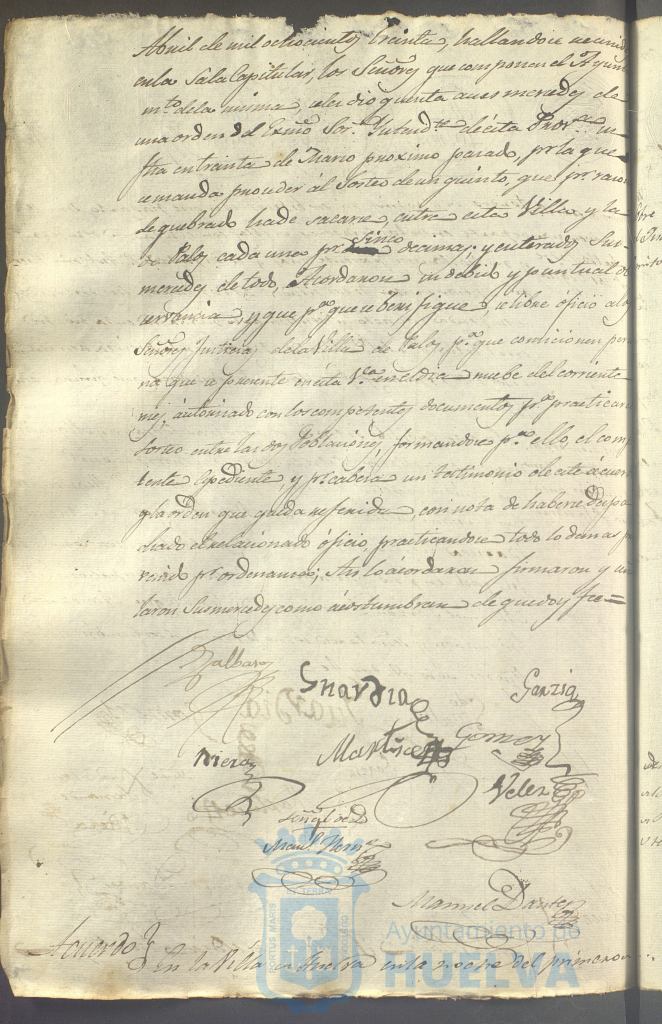 Abril de mil ochocientos treinta, hallandose reunid
en la Sala Capitular, los Señores que componen el Ayun
mto. de la misma, se les dio quenta a sus mercedes de
una orden del Exmo Sor. Intendte. de esta Prova. su
fha en treinta de Marzo proximo pasado, pr. la que
se manda proceder al Sorteo de un quinto, que pr. razon
de quebrado ha de sacarse, entre esta Villa y la
de Palos cada una pr. sinco decimas; y enterados Sus
mercedes de todo, Acordaron su debido y puntual ob
servancia, y que pa. que se berifique, se libre oficio a los
Señores Justicias de la Villa de Palos, pa. que comicionen perso
na que se presente en esta Va. en el dia nuebe del corriente
mes, autorizado con los competentes documentos pa. practicar
Sorteo entre las dos Poblaciones, formandose pa. ello, el comp
tente Expediente y pr. cabeza un testimonio de este acuer
y la orden que queda referida, con nota de haberse despa
chado el relacionado oficio, practicandose todo lo demas p
venido pr. ordenansas; Asi lo acordaron firmaron y
laron Sus mercedes como acostumbran de que doy fee=
Balbas
Guardia
Garzia
Martinez
Gomez
Mera
Velez
Señal de D
Manl.
Manuel
Acuerdo} En la Villa en Huelva en la noche del primero
PORTUS MARIS
TERRE
CUSTODIA
Ayuntamiento de
HUELVA